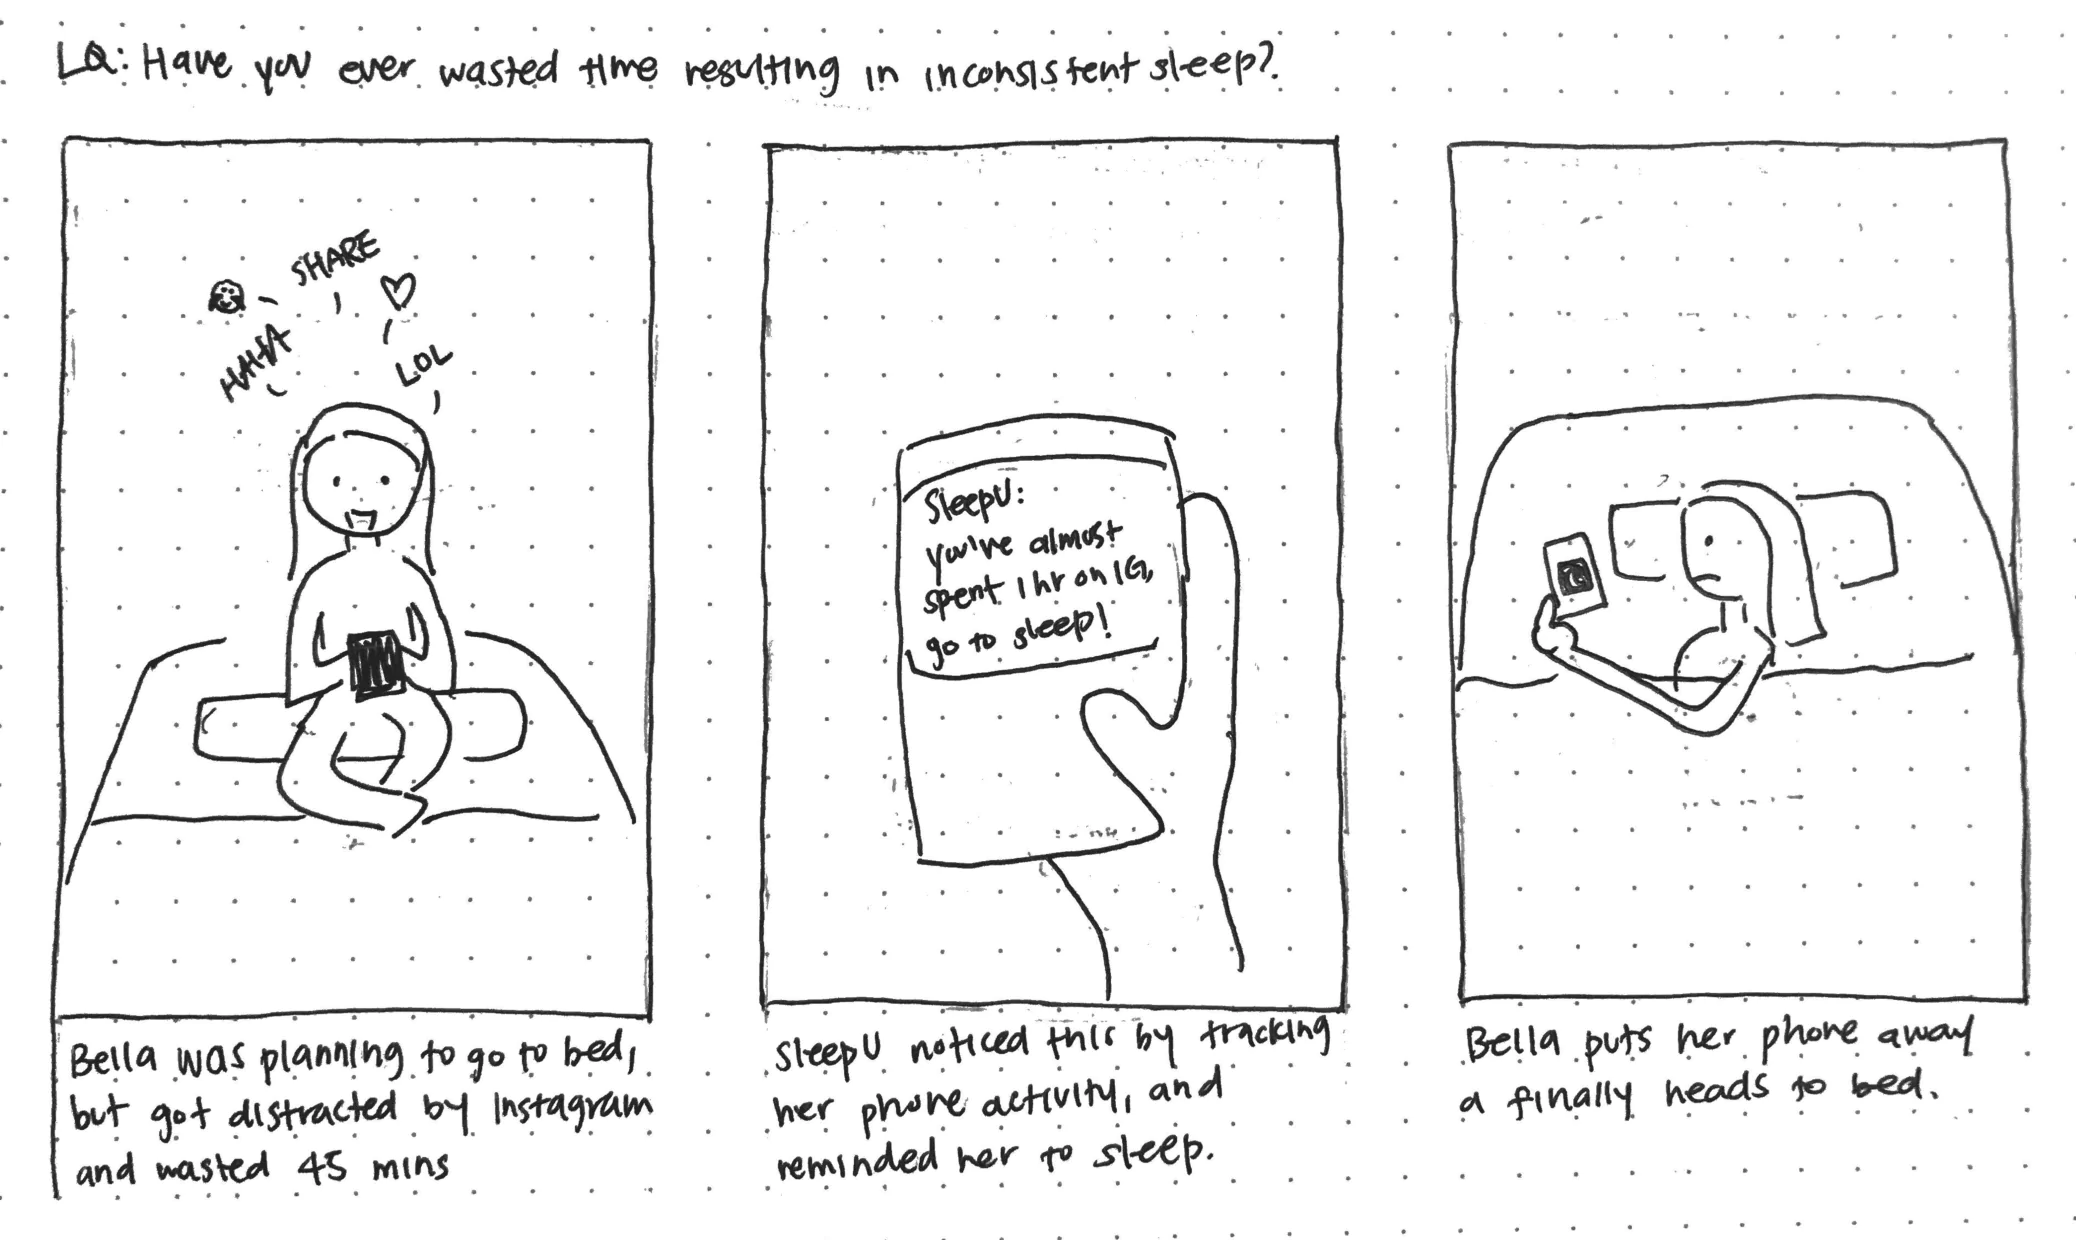 LQ: Have you ever wasted time resulting in inconsistent sleep?
SHARE
HAHA
LOL
Bella was planning to go to bed,
but got distracted by Instagram
and wasted 45 mins
SleepU:
you've almost
spent 1 hr on IG,
go to sleep!
SleepU noticed this by tracking
her phone activity, and
reminded her to sleep.
Bella puts her phone away
a finally heads to bed.